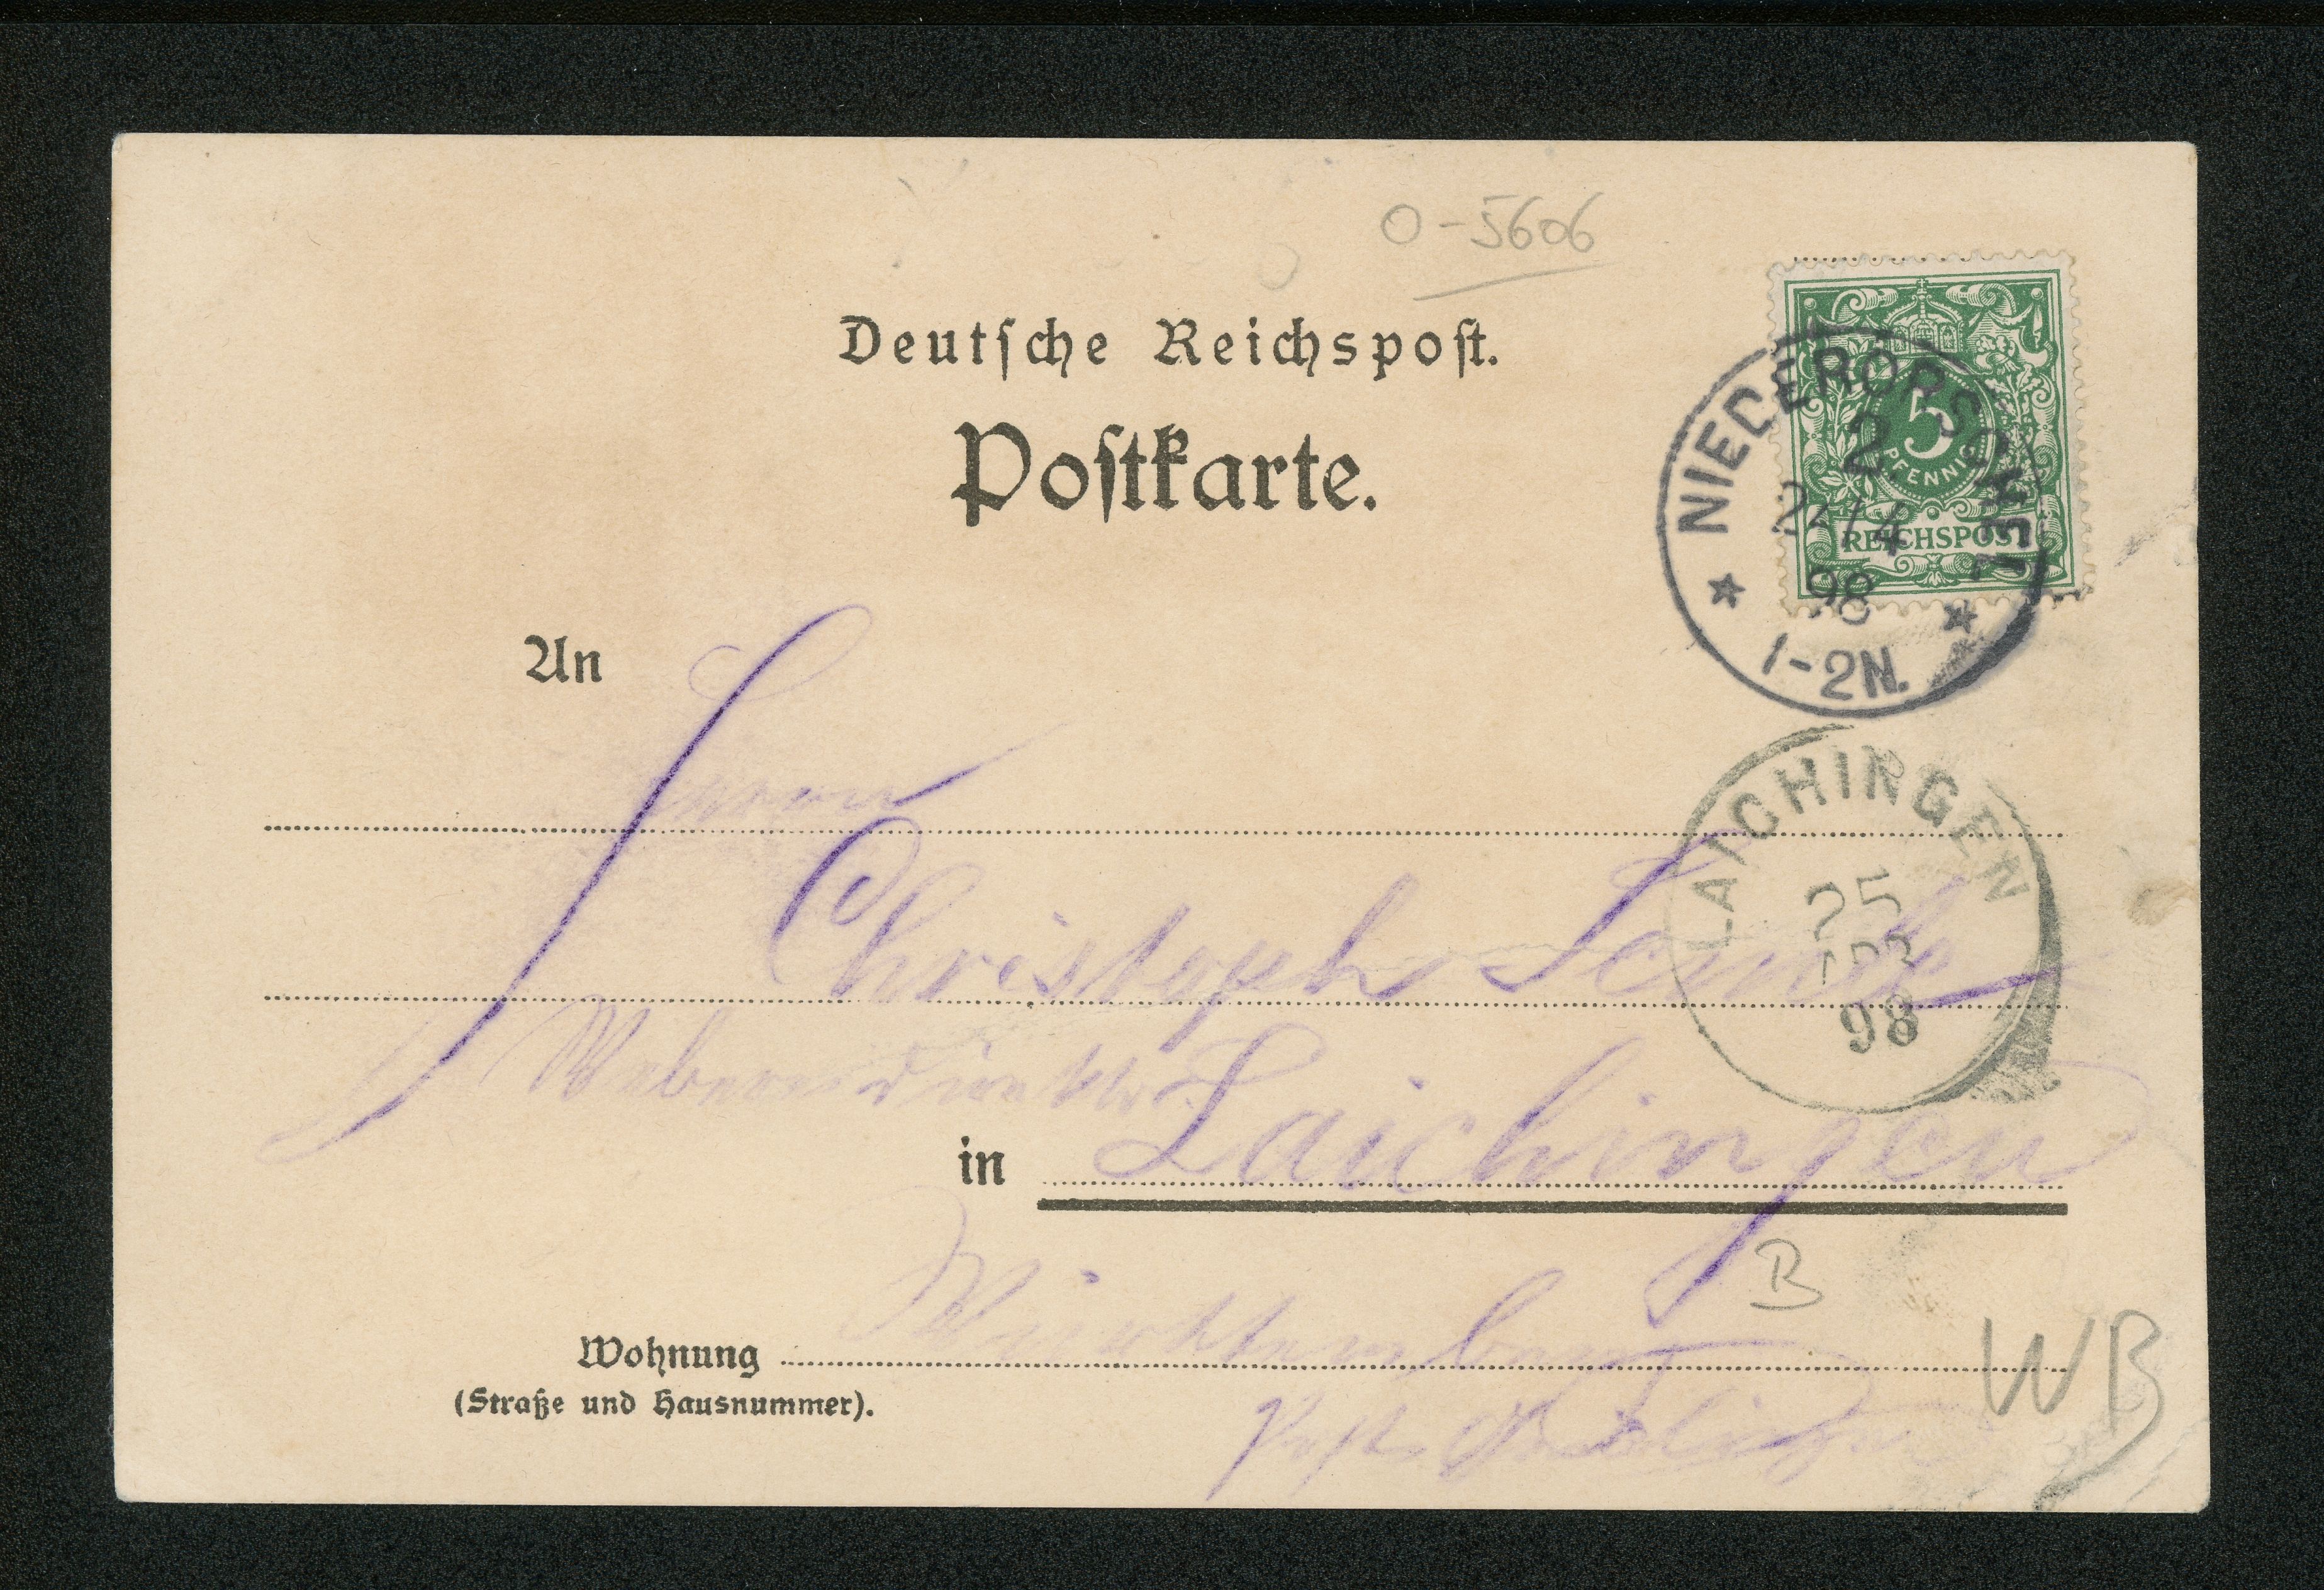 O-5606
Deutsche Reichspost.
Postkarte.
5
PFENNIG
REICHSPOST
NIEDERORSCHEL
2.
24/4
98
1-2N.
An
Herrn
LAICHINGEN
25
APR
98
Christoph
in Laichingen
B
Württemberg
Wohnung
(Straße und Hausnummer).
WB
Post